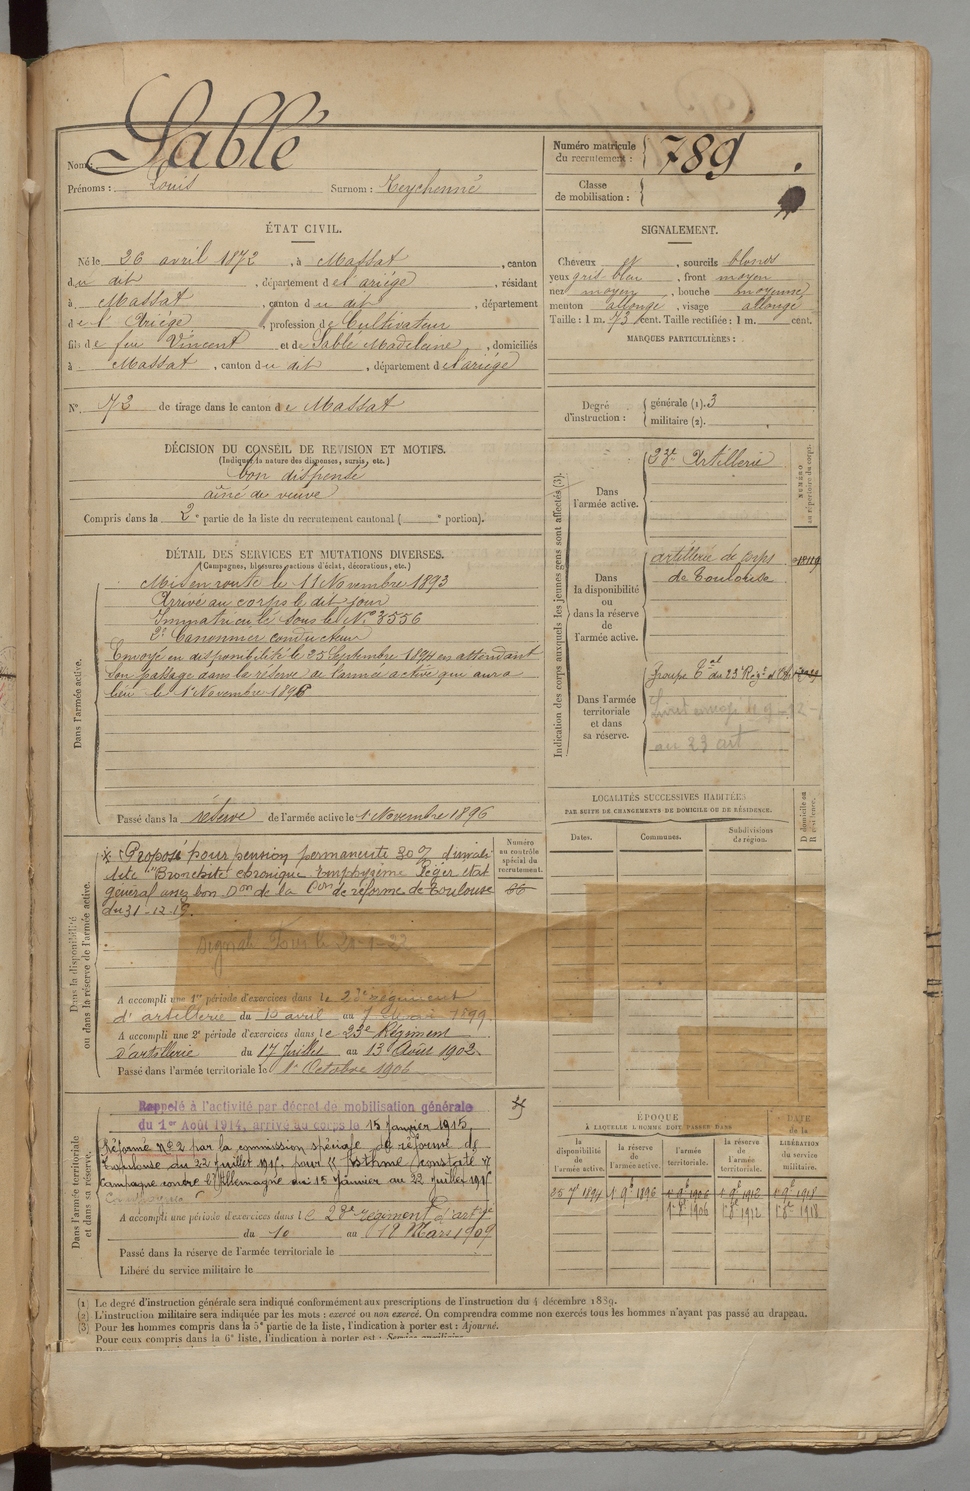 Nom: Sablé
Prénoms: Louis Surnom: Teychenné
Numéro matricule du recrutement: 789
Classe de mobilisation:
ÉTAT CIVIL.
Né le 26 avril 1872, à Massat, canton
du dit, département de l'ariège, résidant
à Massat, canton du dit, département
de l'Ariège, profession de Cultivateur
fils de feu Vincent et de Sablé Madeleine, domiciliés
à Massat, canton du dit, département de l'ariège
N° 73 de tirage dans le canton de Massat
SIGNALEMENT.
Cheveux, sourcils blonds
yeux gris bleu, front moyen
nez moyen, bouche moyenne
menton allongé, visage allongé
Taille: 1 m. 73 cent. Taille rectifiée: 1 m. cent.
MARQUES PARTICULIÈRES:
Degré d'instruction: générale (1). 3
militaire (2).
DÉCISION DU CONSEIL DE REVISION ET MOTIFS.
(Indiquer la nature des dispenses, sursis, etc.)
bon dispensé
aîné de veuve
Compris dans la 2e partie de la liste du recrutement cantonal ( e portion).
DÉTAIL DES SERVICES ET MUTATIONS DIVERSES.
(Campagnes, blessures, actions d'éclat, décorations, etc.)
Dans l'armée active.
Mis en route le 11 Novembre 1893
Arrivé au corps le dit jour
Immatriculé sous le N° 3556
2e Canonnier conducteur
Envoyé en disponibilité le 25 Septembre 1894 en attendant
son passage dans la réserve de l'armée active qui aura
lieu le 1er Novembre 1896
Passé dans la réserve de l'armée active le 1er Novembre 1896
Indication des corps auxquels les jeunes gens sont affectés (3).
NUMÉRO au répertoire du corps.
Dans l'armée active.
23e Artillerie
Dans la disponibilité ou dans la réserve de l'armée active.
artillerie de corps
de Toulouse
Dans l'armée territoriale et dans sa réserve.
Groupe Tal du 23e Régt d'Art
au 23 art
LOCALITÉS SUCCESSIVES HABITÉES
PAR SUITE DE CHANGEMENTS DE DOMICILE OU DE RÉSIDENCE.
Dates. Communes. Subdivisions de région. D domicile ou R résidence.
Dans la disponibilité ou dans la réserve de l'armée active.
Numéro au contrôle spécial du recrutement.
Proposé pour pension permanente 30% d'invali-
dité "Bronchite chronique Emphysème léger état
général assez bon Don de la Con de réforme de Toulouse
du 31-12-19.
A accompli une 1re période d'exercices dans le 23e régiment
d'artillerie du 10 avril au 7 Mai 1899
A accompli une 2e période d'exercices dans le 23e Régiment
d'artillerie du 17 Juillet au 13 Août 1902.
Passé dans l'armée territoriale le 1er Octobre 1906
Dans l'armée territoriale et dans sa réserve.
Rappelé à l'activité par décret de mobilisation générale
du 1er Août 1914, arrivé au corps le 15 Janvier 1915.
Réformé N° 2 par la commission spéciale de réforme de
Toulouse du 22 juillet 1915 pour "Asthme constaté"
Campagne contre l'Allemagne du 15 Janvier au 22 Juillet 1915
A accompli une période d'exercices dans le 23e régiment d'artie
du 10 au 18 Mars 1909
Passé dans la réserve de l'armée territoriale le
Libéré du service militaire le
ÉPOQUE À LAQUELLE L'HOMME DOIT PASSER DANS
la disponibilité de l'armée active. la réserve de l'armée active. l'armée territoriale. la réserve de l'armée territoriale. DATE de la LIBÉRATION du service militaire.
25 7bre 1894 1 9bre 1896 1er 9bre 1906 1er 9bre 1912 1er 9bre 1918
1er 8bre 1906 1er 8bre 1912 1er 8bre 1918
(1) Le degré d'instruction générale sera indiqué conformément aux prescriptions de l'instruction du 4 décembre 1889.
(2) L'instruction militaire sera indiquée par les mots: exercé ou non exercé. On comprendra comme non exercés tous les hommes n'ayant pas passé au drapeau.
(3) Pour les hommes compris dans la 5e partie de la liste, l'indication à porter est: Ajourné.
Pour ceux compris dans la 6e liste, l'indication à porter est: Service auxiliaire.